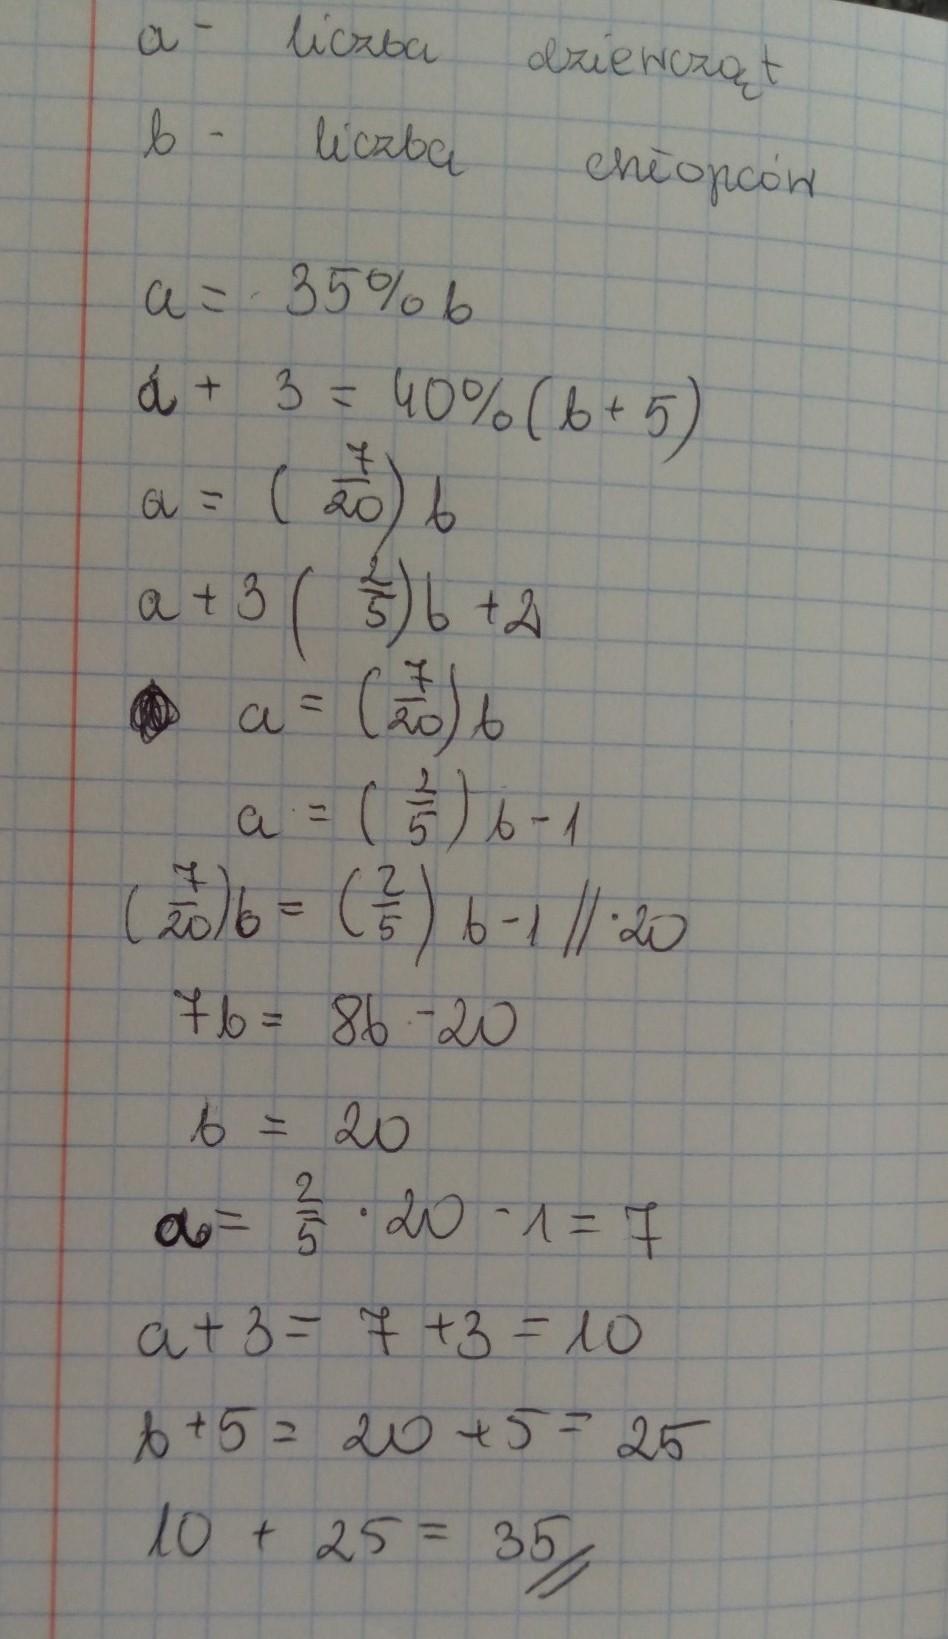 a - liczba dziewcząt
b - liczba chłopców
a = 35% b
a + 3 = 40% (b + 5)
a = (7/20) b
a + 3 (2/5) b + 2
a = (7/20) b
a = (2/5) b - 1
(7/20) b = (2/5) b - 1 // · 20
7b = 8b - 20
b = 20
a = 2/5 · 20 - 1 = 7
a + 3 = 7 + 3 = 10
b + 5 = 20 + 5 = 25
10 + 25 = 35